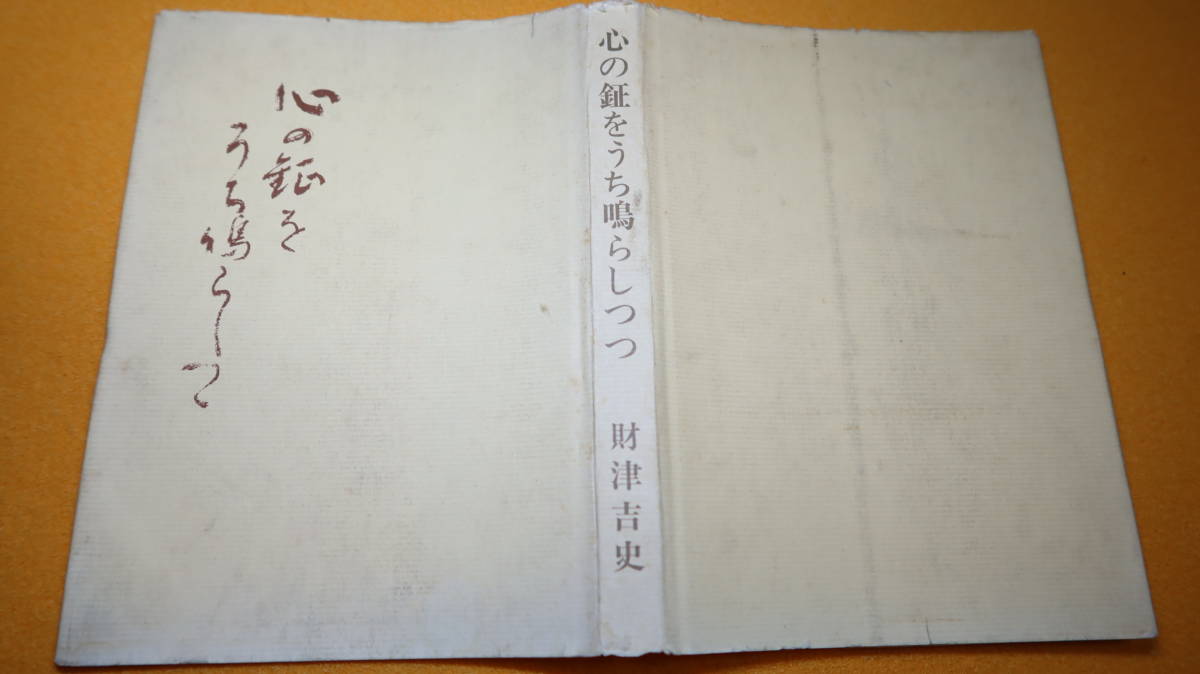 心の鉦を
うち鳴らしつつ
心の鉦をうち鳴らしつつ 財津吉史